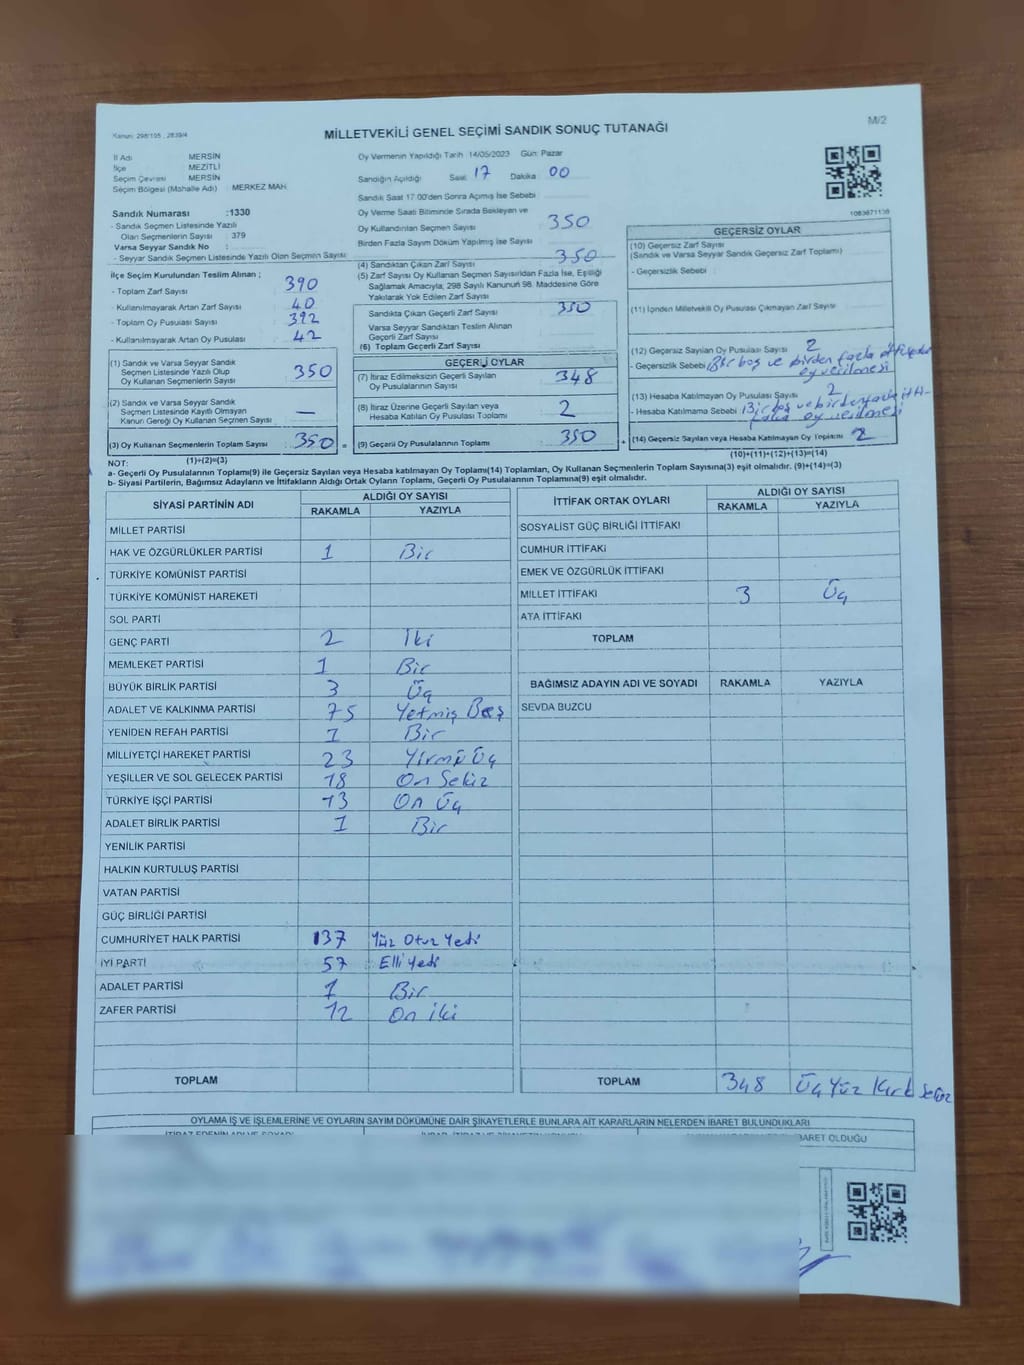 Kanun: 298/105 , 2839/4
MİLLETVEKİLİ GENEL SEÇİMİ SANDIK SONUÇ TUTANAĞI
M/2
İl Adı MERSİN
İlçe MEZİTLİ
Seçim Çevresi MERSİN
Seçim Bölgesi (Mahalle Adı) : MERKEZ MAH
Sandık Numarası :1330
- Sandık Seçmen Listesinde Yazılı
Olan Seçmenlerin Sayısı : 379
Varsa Seyyar Sandık No :
- Seyyar Sandık Seçmen Listesinde Yazılı Olan Seçmen Sayısı
İlçe Seçim Kurulundan Teslim Alınan ;
- Toplam Zarf Sayısı 390
- Kullanılmayarak Artan Zarf Sayısı 40
- Toplam Oy Pusulası Sayısı 392
- Kullanılmayarak Artan Oy Pusulası 42
(1) Sandık ve Varsa Seyyar Sandık
Seçmen Listesinde Yazılı Olup
Oy Kullanan Seçmenlerin Sayısı 350
(2) Sandık ve Varsa Seyyar Sandık
Seçmen Listesinde Kayıtlı Olmayan
Kanun Gereği Oy Kullanan Seçmen Sayısı —
(3) Oy Kullanan Seçmenlerin Toplam Sayısı 350 =
(1)+(2)=(3)
Oy Vermenin Yapıldığı Tarih 14/05/2023 Gün: Pazar
Sandığın Açıldığı Saat 17 Dakika 00
Sandık Saat 17.00'den Sonra Açılmış İse Sebebi
Oy Verme Saati Bitiminde Sırada Bekleyen ve
Oy Kullandırılan Seçmen Sayısı 350
Birden Fazla Sayım Döküm Yapılmış İse Sayısı
(4) Sandıktan Çıkan Zarf Sayısı 350
(5) Zarf Sayısı Oy Kullanan Seçmen Sayısından Fazla İse, Eşitliği
Sağlamak Amacıyla; 298 Sayılı Kanunun 98. Maddesine Göre
Yakılarak Yok Edilen Zarf Sayısı
Sandıkta Çıkan Geçerli Zarf Sayısı 350
Varsa Seyyar Sandıktan Teslim Alınan
Geçerli Zarf Sayısı
(6) Toplam Geçerli Zarf Sayısı
GEÇERLİ OYLAR
(7) İtiraz Edilmeksizin Geçerli Sayılan
Oy Pusulalarının Sayısı 348
(8) İtiraz Üzerine Geçerli Sayılan veya
Hesaba Katılan Oy Pusulası Toplamı 2
(9) Geçerli Oy Pusulalarının Toplamı 350 +
1083871138
GEÇERSİZ OYLAR
(10) Geçersiz Zarf Sayısı
(Sandık ve Varsa Seyyar Sandık Geçersiz Zarf Toplamı)
- Geçersizlik Sebebi
(11) İçinden Milletvekili Oy Pusulası Çıkmayan Zarf Sayısı
(12) Geçersiz Sayılan Oy Pusulası Sayısı 2
- Geçersizlik Sebebi Bir boş ve birden fazla
oy verilmesi
(13) Hesaba Katılmayan Oy Pusulası Sayısı 2
- Hesaba Katılmama Sebebi Bir boş ve birden fazla
oy verilmesi
(14) Geçersiz Sayılan veya Hesaba Katılmayan Oy Toplamı 2
(10)+(11)+(12)+(13)=(14)
NOT:
a- Geçerli Oy Pusulalarının Toplamı(9) ile Geçersiz Sayılan veya Hesaba katılmayan Oy Toplamı(14) Toplamları, Oy Kullanan Seçmenlerin Toplam Sayısına(3) eşit olmalıdır. (9)+(14)=(3)
b- Siyasi Partilerin, Bağımsız Adayların ve İttifakların Aldığı Ortak Oyların Toplamı, Geçerli Oy Pusulalarının Toplamına(9) eşit olmalıdır.
SİYASİ PARTİNİN ADI ALDIĞI OY SAYISI
RAKAMLA YAZIYLA
MİLLET PARTİSİ
HAK VE ÖZGÜRLÜKLER PARTİSİ 1 Bir
TÜRKİYE KOMÜNİST PARTİSİ
TÜRKİYE KOMÜNİST HAREKETİ
SOL PARTİ
GENÇ PARTİ 2 İki
MEMLEKET PARTİSİ 1 Bir
BÜYÜK BİRLİK PARTİSİ 3 Üç
ADALET VE KALKINMA PARTİSİ 75 Yetmiş Beş
YENİDEN REFAH PARTİSİ 1 Bir
MİLLİYETÇİ HAREKET PARTİSİ 23 Yirmi Üç
YEŞİLLER VE SOL GELECEK PARTİSİ 18 On Sekiz
TÜRKİYE İŞÇİ PARTİSİ 13 On Üç
ADALET BİRLİK PARTİSİ 1 Bir
YENİLİK PARTİSİ
HALKIN KURTULUŞ PARTİSİ
VATAN PARTİSİ
GÜÇ BİRLİĞİ PARTİSİ
CUMHURİYET HALK PARTİSİ 137 Yüz Otuz Yedi
İYİ PARTİ 57 Elli Yedi
ADALET PARTİSİ 1 Bir
ZAFER PARTİSİ 12 On iki
TOPLAM
İTTİFAK ORTAK OYLARI ALDIĞI OY SAYISI
RAKAMLA YAZIYLA
SOSYALİST GÜÇ BİRLİĞİ İTTİFAKI
CUMHUR İTTİFAKI
EMEK VE ÖZGÜRLÜK İTTİFAKI
MİLLET İTTİFAKI 3 Üç
ATA İTTİFAKI
TOPLAM
BAĞIMSIZ ADAYIN ADI VE SOYADI RAKAMLA YAZIYLA
SEVDA BUZCU
TOPLAM 348 Üç Yüz Kırk Sekiz
OYLAMA İŞ VE İŞLEMLERİNE VE OYLARIN SAYIM DÖKÜMÜNE DAİR ŞİKAYETLERLE BUNLARA AİT KARARLARIN NELERDEN İBARET BULUNDUKLARI
İBARET OLDUĞU